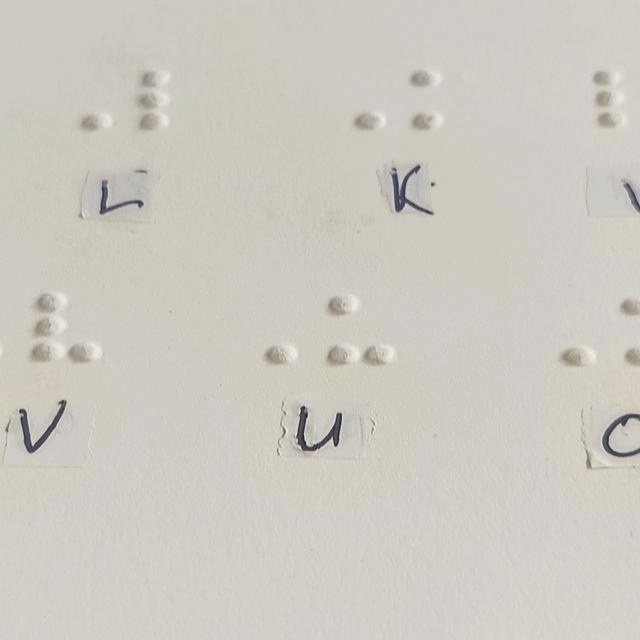 ⠠⠇ ⠠⠅
L K
⠠⠧ ⠠⠥
V U O